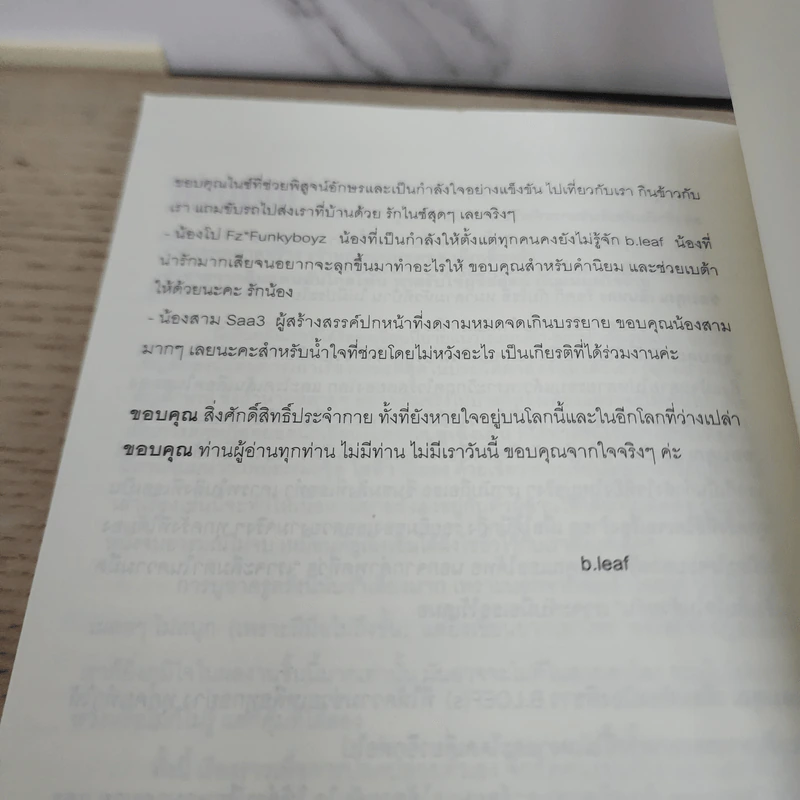 ขอบคุณไนซ์ที่ช่วยพิสูจน์อักษรและเป็นกำลังใจอย่างแข็งขัน ไปเที่ยวกับเรา กินข้าวกับ
เรา แถมขับรถไปส่งเราที่บ้านด้วย รักไนซ์สุดๆ เลยจริงๆ
- น้องโป Fz*Funkyboyz น้องที่เป็นกำลังให้ตั้งแต่ทุกคนคงยังไม่รู้จัก b.leaf น้องที่
น่ารักมากเสียจนอยากจะลุกขึ้นมาทำอะไรให้ ขอบคุณสำหรับคำนิยม และช่วยเบต้า
ให้ด้วยนะคะ รักน้อง
- น้องสาม Saa3 ผู้สร้างสรรค์ปกหน้าที่งดงามหมดจดเกินบรรยาย ขอบคุณน้องสาม
มากๆ เลยนะคะสำหรับน้ำใจที่ช่วยโดยไม่หวังอะไร เป็นเกียรติที่ได้ร่วมงานค่ะ
ขอบคุณ สิ่งศักดิ์สิทธิ์ประจำกาย ทั้งที่ยังหายใจอยู่บนโลกนี้และในอีกโลกที่ว่างเปล่า
ขอบคุณ ท่านผู้อ่านทุกท่าน ไม่มีท่าน ไม่มีเราวันนี้ ขอบคุณจากใจจริงๆ ค่ะ
b.leaf